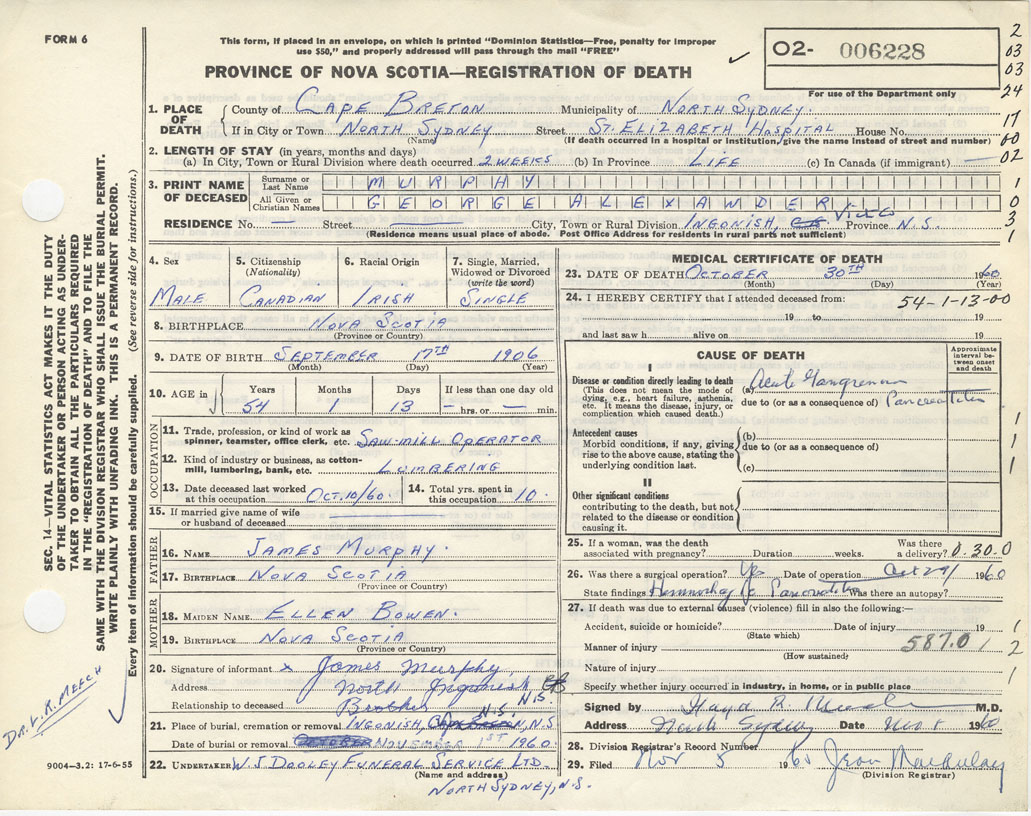 FORM 6
This form, if placed in an envelope, on which is printed "Dominion Statistics—Free, penalty for improper
use $50," and properly addressed will pass through the mail "FREE"
PROVINCE OF NOVA SCOTIA—REGISTRATION OF DEATH
02- 006228
For use of the Department only
2
03
03
24
17
00
02
1
0
3
1
1. PLACE OF DEATH
County of CAPE BRETON Municipality of NORTH SYDNEY.
If in City or Town NORTH SYDNEY Street ST. ELIZABETH HOSPITAL House No.
(Name) (If death occurred in a hospital or institution, give the name instead of street and number)
2. LENGTH OF STAY (in years, months and days)
(a) In City, Town or Rural Division where death occurred 2 WEEKS (b) In Province LIFE (c) In Canada (if immigrant) —
3. PRINT NAME OF DECEASED
Surname or Last Name MURPHY
All Given or Christian Names GEORGE ALEXANDER
RESIDENCE No. — Street — City, Town or Rural Division INGONISH, Vict Co Province N.S.
(Residence means usual place of abode. Post Office Address for residents in rural parts not sufficient)
4. Sex MALE
5. Citizenship (Nationality) CANADIAN
6. Racial Origin IRISH
7. Single, Married, Widowed or Divorced (write the word) SINGLE
8. BIRTHPLACE NOVA SCOTIA
(Province or Country)
9. DATE OF BIRTH SEPTEMBER 17TH 1906
(Month) (Day) (Year)
10. AGE in
Years Months Days If less than one day old
54 1 13 — hrs. or — min.
OCCUPATION
11. Trade, profession, or kind of work as spinner, teamster, office clerk, etc. SAW-MILL OPERATOR
12. Kind of industry or business, as cotton-mill, lumbering, bank, etc. LUMBERING
13. Date deceased last worked at this occupation OCT. 10/60.
14. Total yrs. spent in this occupation 10.
15. If married give name of wife or husband of deceased
FATHER
16. NAME JAMES MURPHY.
17. BIRTHPLACE NOVA SCOTIA
(Province or Country)
MOTHER
18. MAIDEN NAME ELLEN BOWEN.
19. BIRTHPLACE NOVA SCOTIA
(Province or Country)
20. Signature of informant x James Murphy
Address North Ingonish N.S.
Relationship to deceased Brother
21. Place of burial, cremation or removal INGONISH, N.S.
Date of burial or removal NOVEMBER 1ST 1960.
22. UNDERTAKER W. J. DOOLEY FUNERAL SERVICE LTD.
(Name and address)
NORTH SYDNEY, N.S.
MEDICAL CERTIFICATE OF DEATH
23. DATE OF DEATH OCTOBER 30TH 1960
(Month) (Day) (Year)
24. I HEREBY CERTIFY that I attended deceased from: 54-1-13-00
19 to 19
and last saw h alive on 19
CAUSE OF DEATH
Approximate interval between onset and death
I
Disease or condition directly leading to death (a) Acute Gangrenous
(This does not mean the mode of dying, e.g., heart failure, asthenia, etc. It means the disease, injury, or complication which caused death.)
due to (or as a consequence of) Pancreatitis
Antecedent causes
Morbid conditions, if any, giving rise to the above cause, stating the underlying condition last.
(b)
due to (or as a consequence of)
(c)
1
1
1
II
Other significant conditions contributing to the death, but not related to the disease or condition causing it.
25. If a woman, was the death associated with pregnancy? Duration weeks. Was there a delivery? 0.30.0
26. Was there a surgical operation? Yes Date of operation Oct 29/ 1960
State findings Pancreatitis Was there an autopsy?
27. If death was due to external causes (violence) fill in also the following:—
Accident, suicide or homicide? Date of injury 19 1
(State which)
Manner of injury 587.0 1 2
(How sustained)
Nature of injury 1
Specify whether injury occurred in industry, in home, or in public place
Signed by M.D.
Address North Sydney Date Nov 1 1960
28. Division Registrar's Record Number
29. Filed Nov 5 1960
(Division Registrar)
SEC. 14—VITAL STATISTICS ACT MAKES IT THE DUTY
OF THE UNDERTAKER OR PERSON ACTING AS UNDER-
TAKER TO OBTAIN ALL THE PARTICULARS REQUIRED
IN THE "REGISTRATION OF DEATH" AND TO FILE THE
SAME WITH THE DIVISION REGISTRAR WHO SHALL ISSUE THE BURIAL PERMIT.
WRITE PLAINLY WITH UNFADING INK. THIS IS A PERMANENT RECORD.
Every item of information should be carefully supplied. (See reverse side for instructions.)
DR. MEECH
9004-3.2: 17-6-55